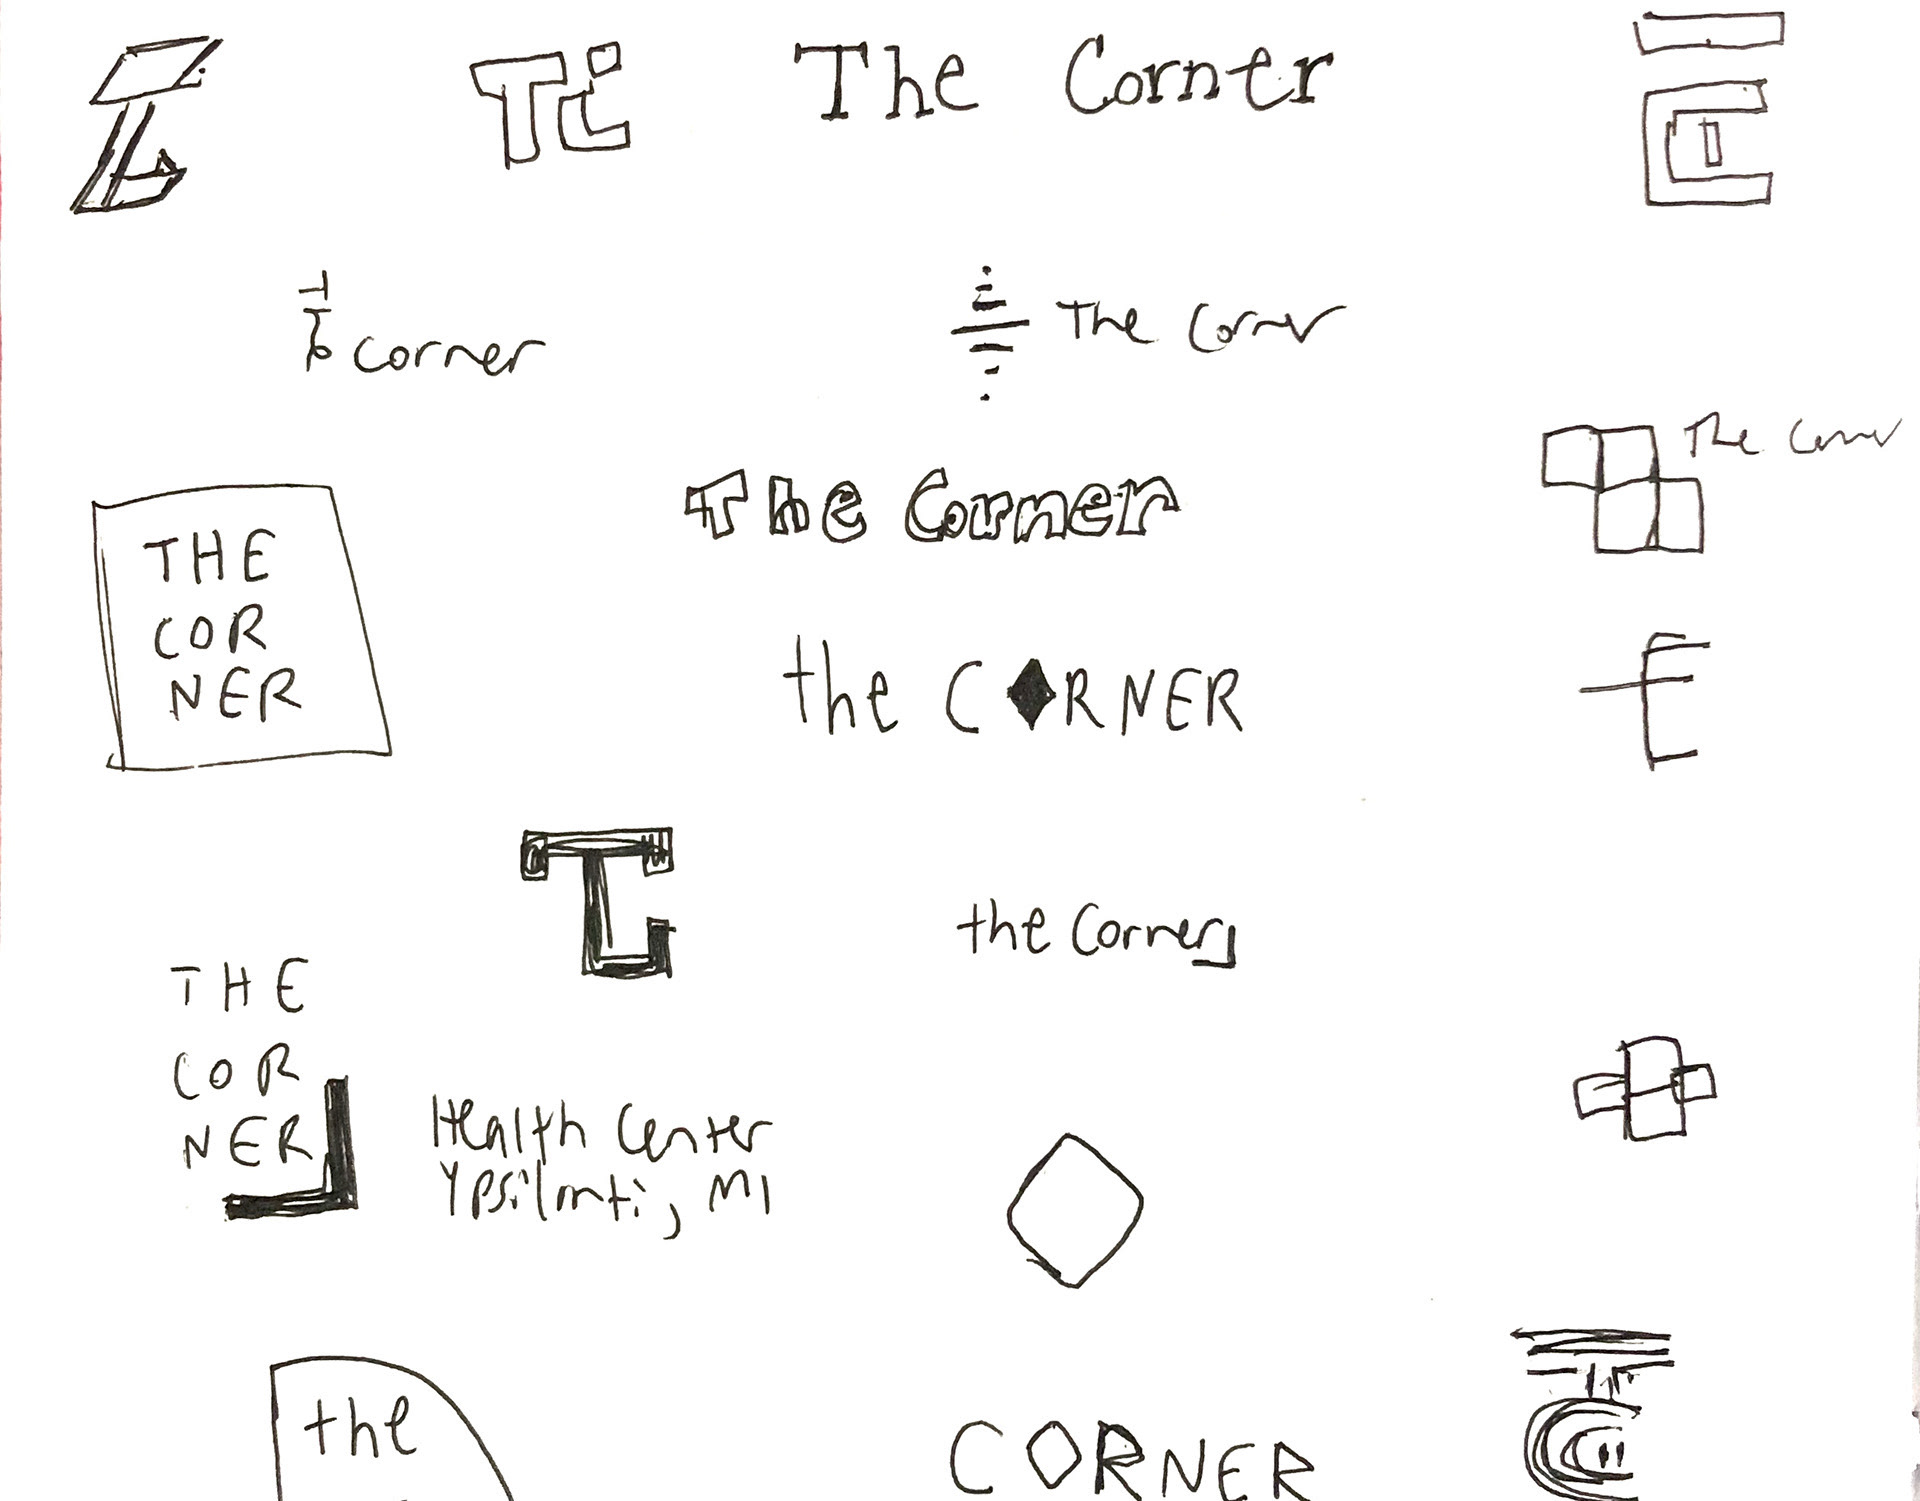 TC
The Corner
TC
The corner
The Corner
The Corner
THE
COR
NER
The Corner
the CORNER
TC
the Corner
THE
COR
NER
Health Center
Ypsilanti, MI
the
CORNER
TC